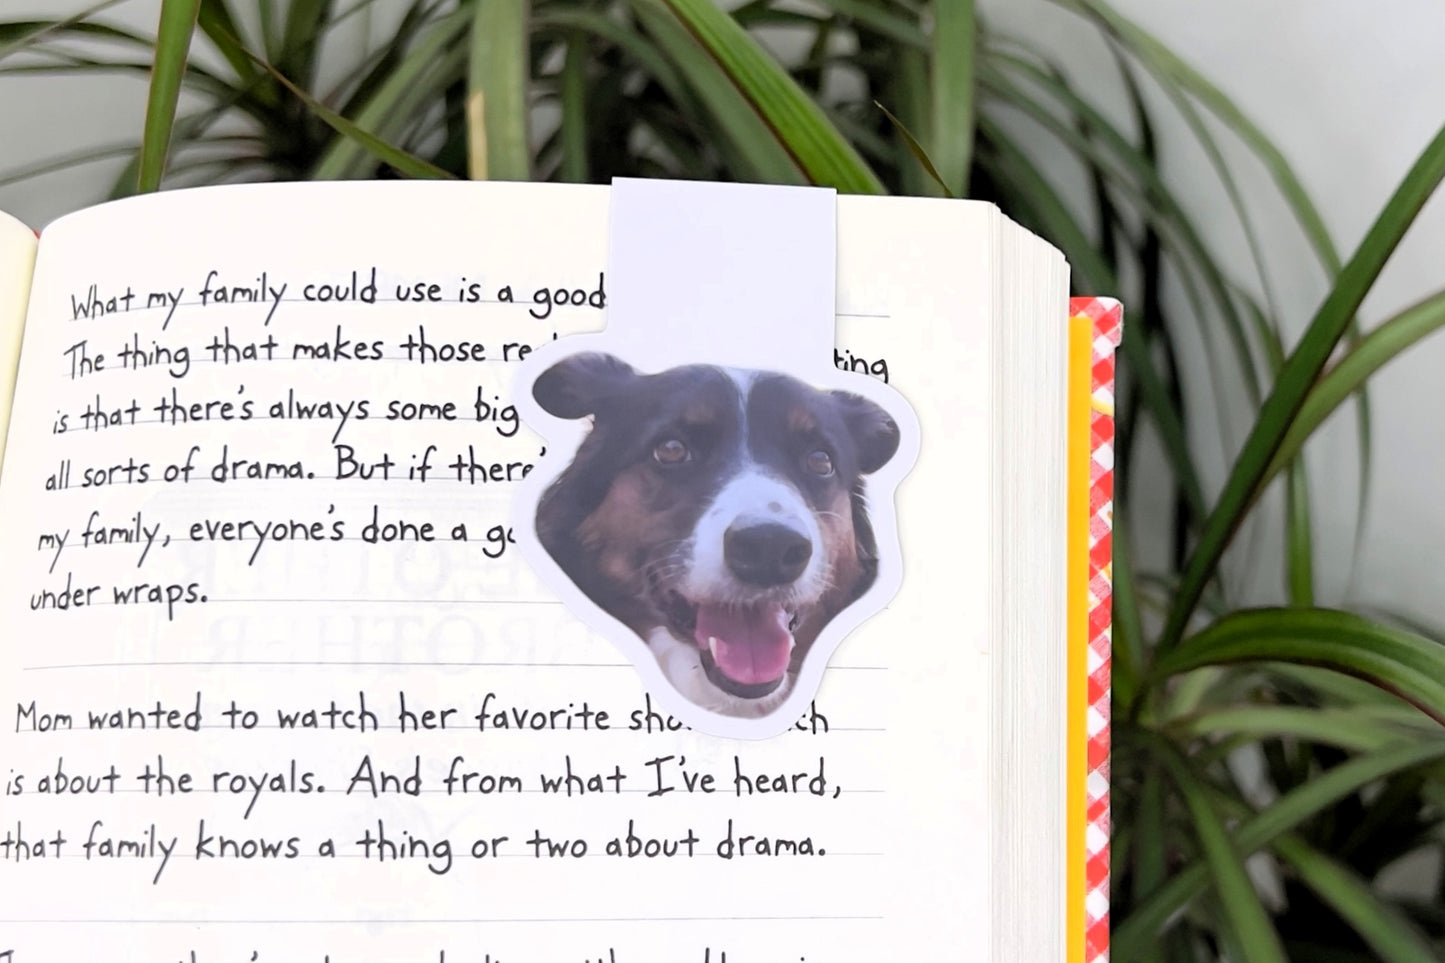 What my family could use is a good
The thing that makes those
is that there's always some big
all sorts of drama. But if there'
my family, everyone's done a
under wraps.
Mom wanted to watch her favorite
is about the royals. And from what I've heard,
that family knows a thing or two about drama.